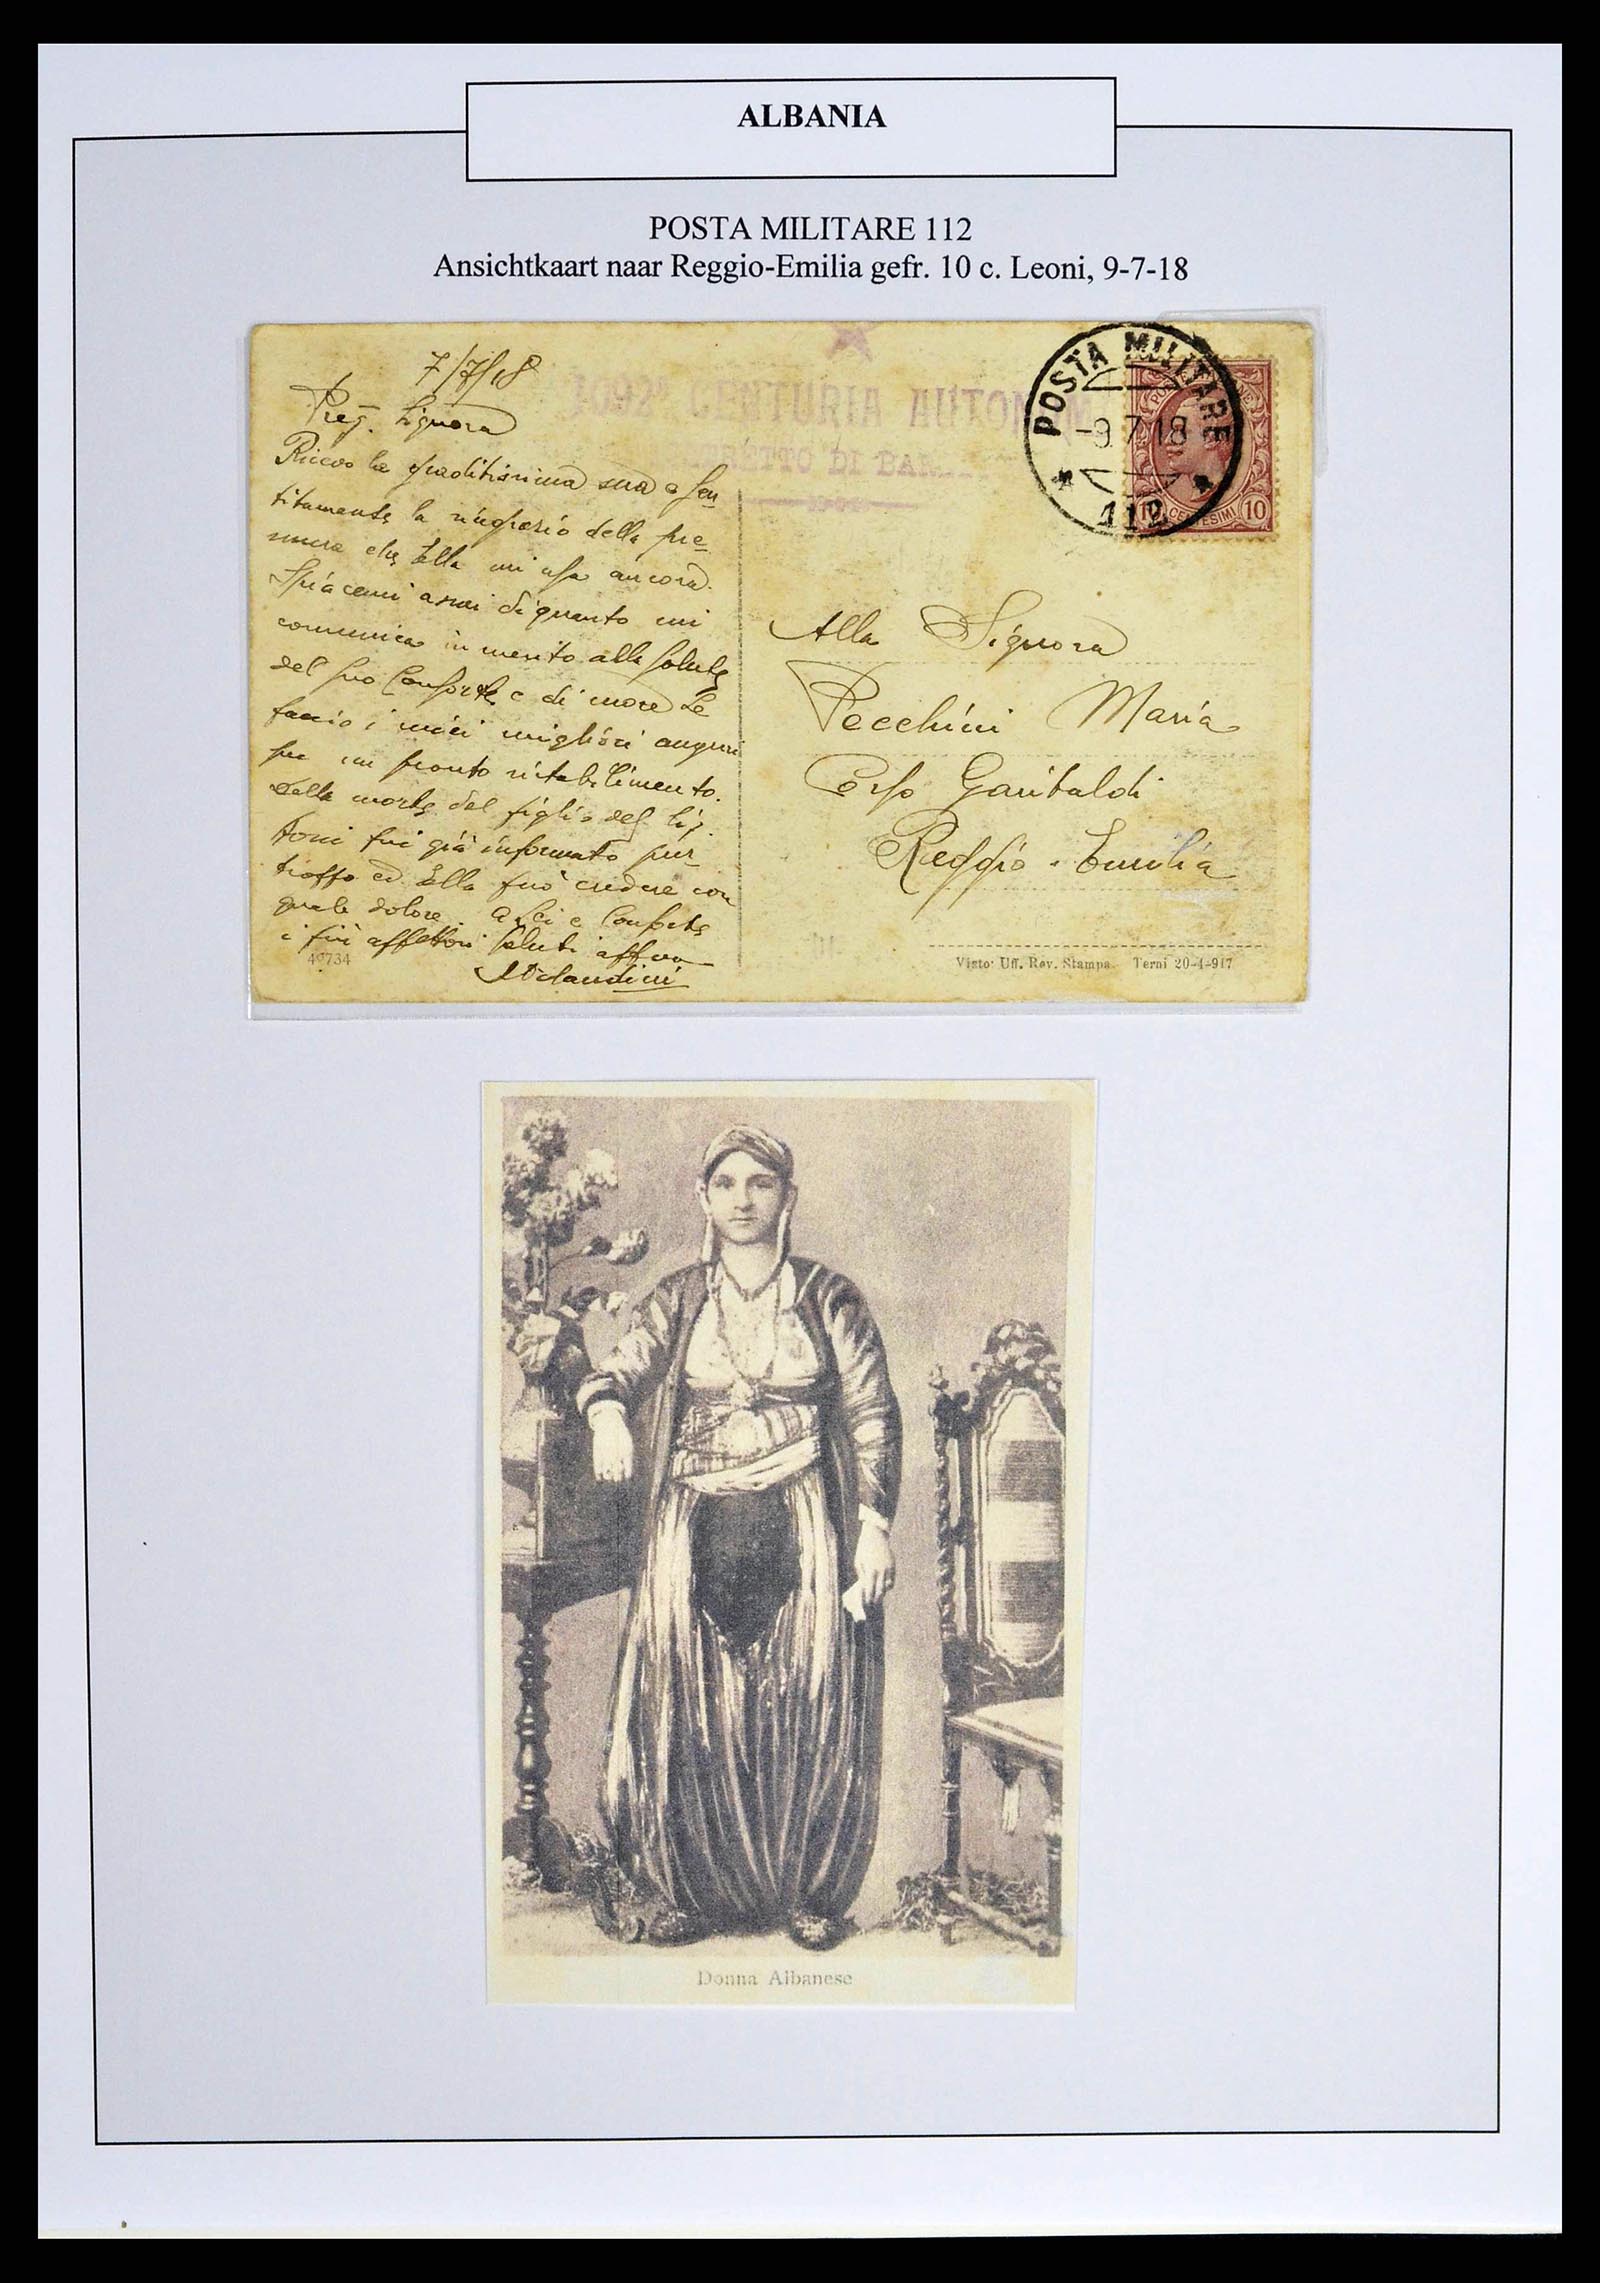 ALBANIA
POSTA MILITARE 112
Ansichtkaart naar Reggio-Emilia gefr. 10 c. Leoni, 9-7-18
7/7/18
Preg. Signora
Ricevo la graditissima sua e sen-
titamente la ringrazio della pre-
mura che Ella mi usa ancora.
Spiacemi assai di quanto mi
comunica in merito alla salute
del suo Consorte e di more Le
faccio i miei migliori auguri
per un pronto ristabilimento.
Della morte del figlio del Sig.
Toni fui già informato pur-
troppo ed Ella può credere con
quale dolore. A Lei e Consorte
i più affettuosi saluti affmo
Orlandini
49734
1098ª CENTURIA AUTONOM
DI
POSTA MILITARE
-9.7.18
112
10 CENTESIMI 10
Alla Signora
Pecchini Maria
Corso Garibaldi
Reggio-Emilia
Visto: Uff. Rev. Stampa Terni 20-4-917
Donna Albanese